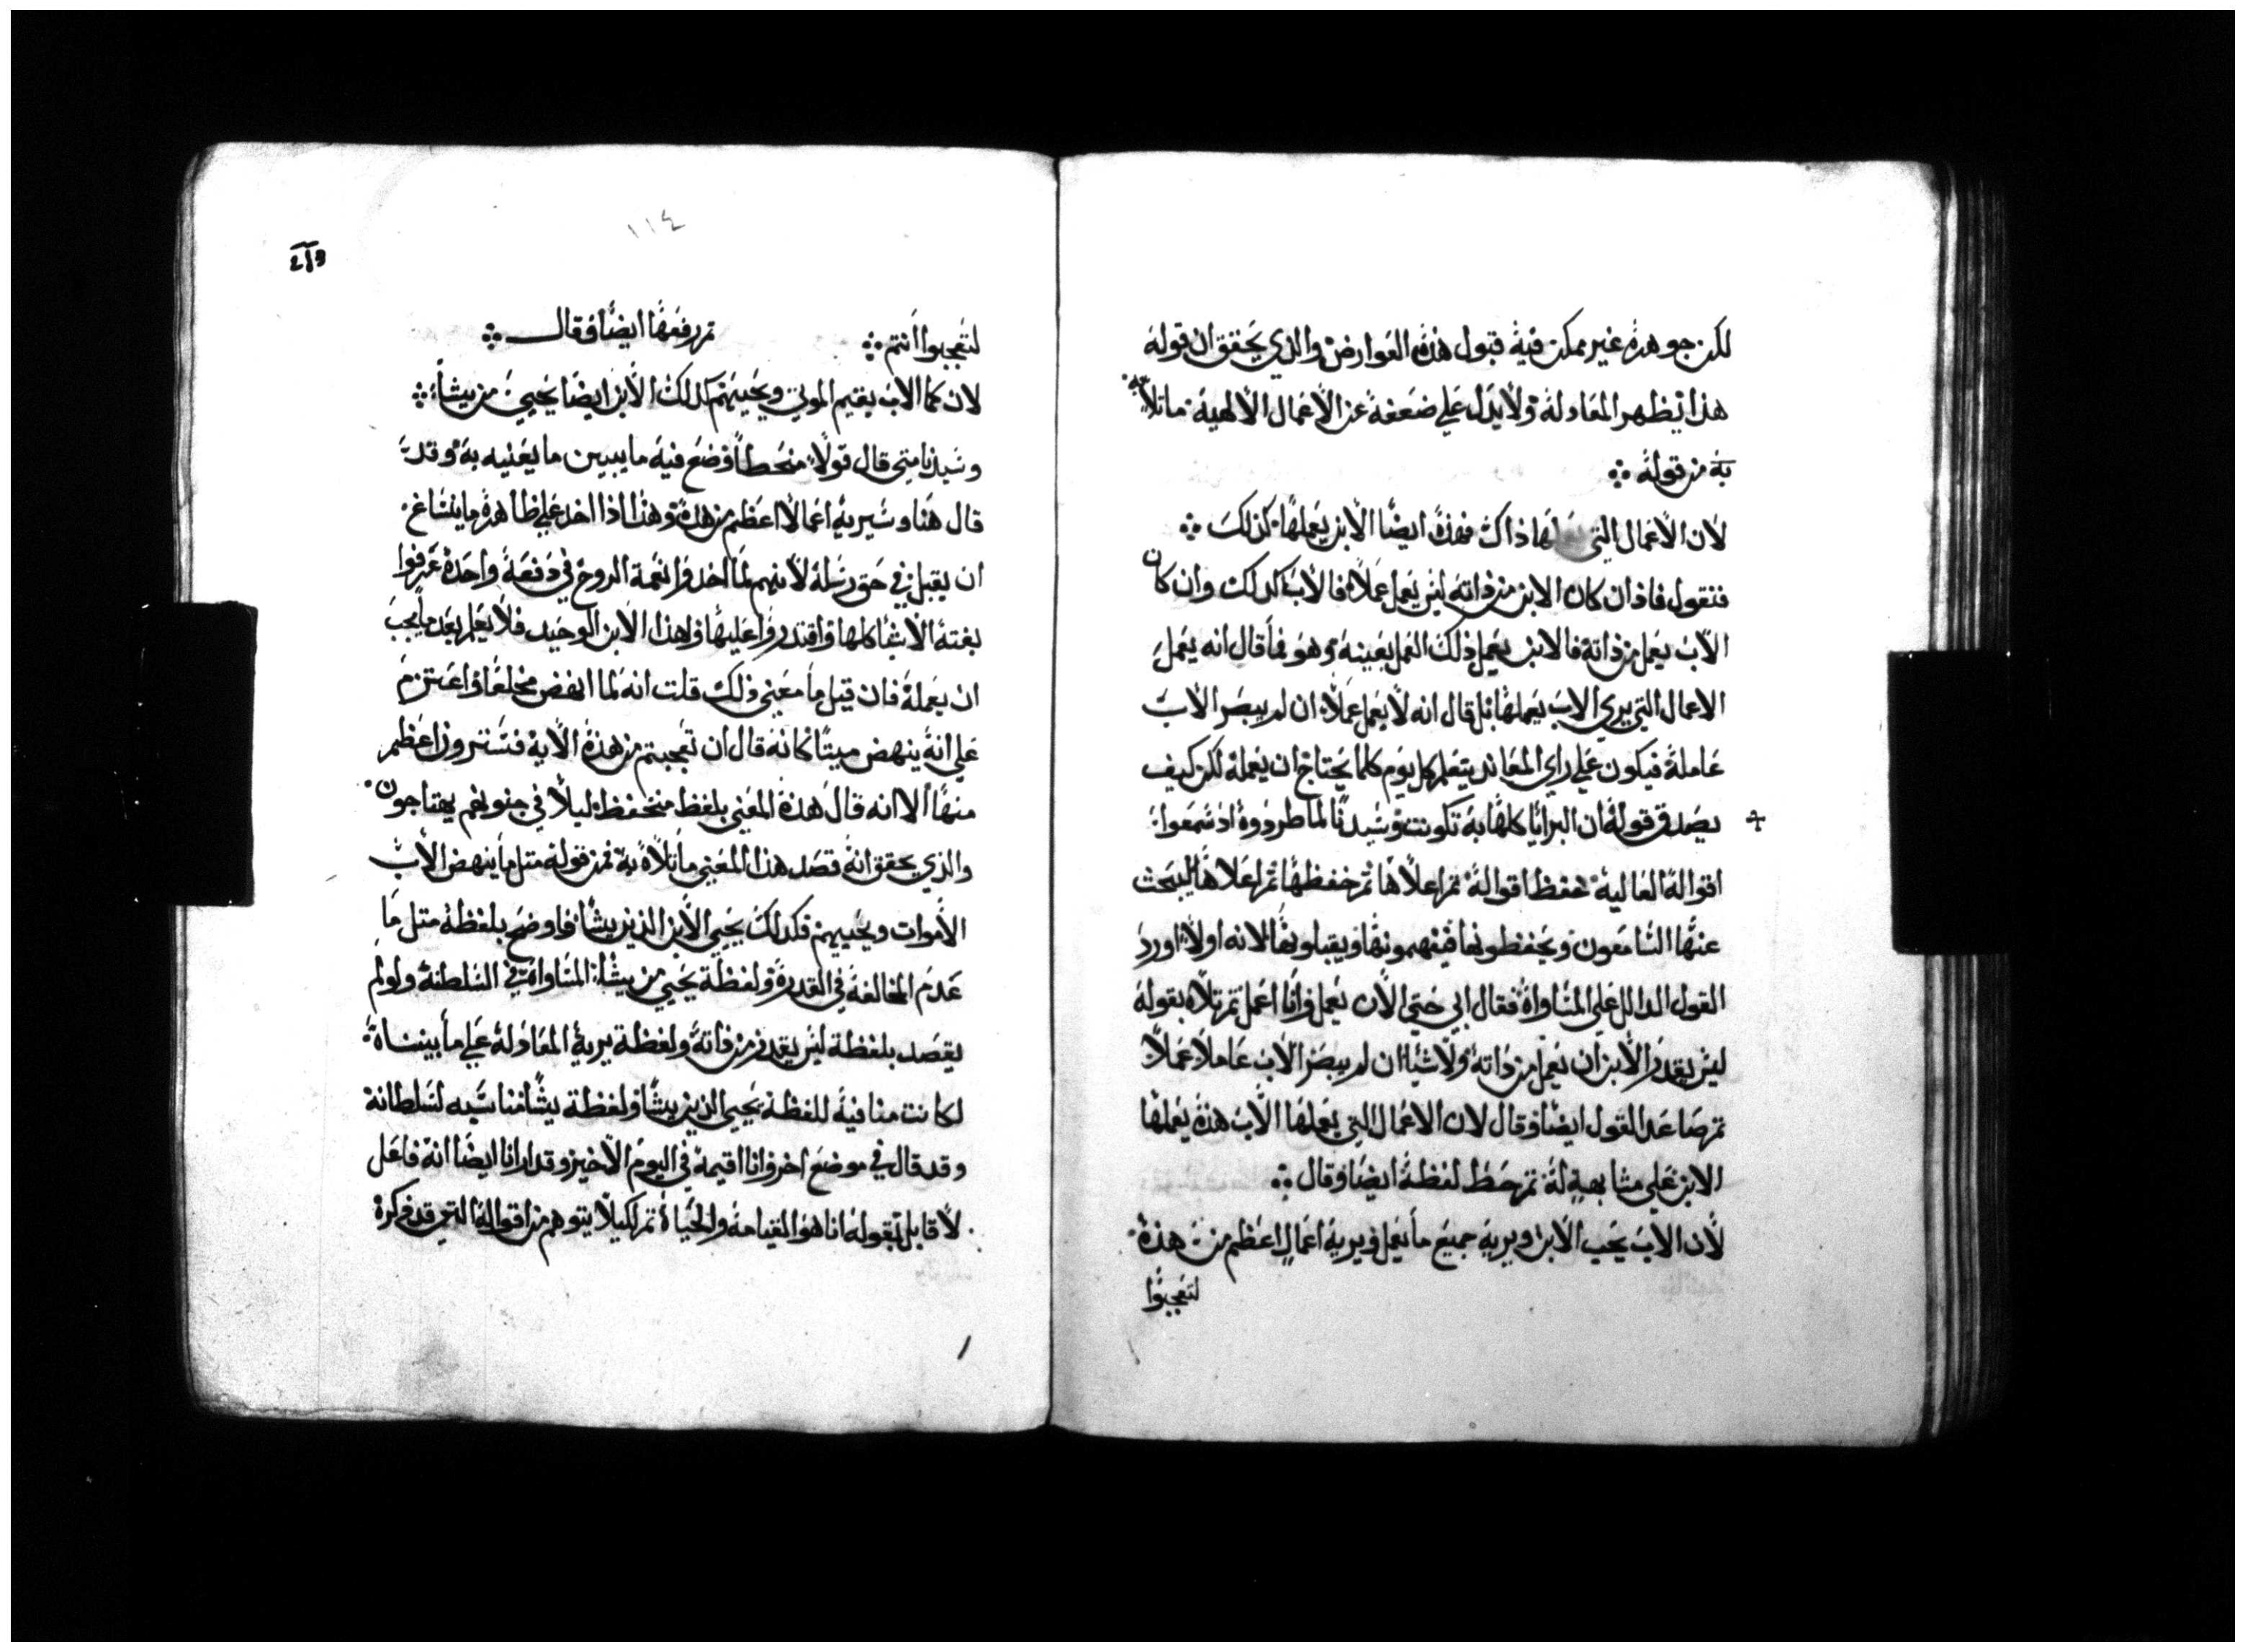 لكن جوهره غير ممكن فيه قبول هذه العوارض والذي يحقق ان قوله
هذا يظهر المعادلة ولا يدل علي ضعفه عن الاعمال الالهية ما تلاه
به من قوله
لان الاعمال التي ذاك فهذه ايضا الابن يعملها كذلك
فنقول فاذ ان كان الابن من ذاته ليس يعمل عملا فالاب كذلك وان كان
الاب يعمل من ذاته فالابن يعمل ذلك العمل بعينه وهو فما قال انه يعمل
الاعمال التي يري الاب يعملها بل قال انه لا يعمل عملا ان لم يبصر الاب
عامله فيكون علي راي المعاند يتعلم كل يوم كلما يحتاج ان يعمله لكن كيف
يصدق قوله ان البرايا كلها به تكونت وسيدنا لما طردوه اذ سمعوا
اقواله العالية خفظ اقواله ثم اعلاها ثم خفظها ثم اعلاها ليبحث
عنها السامعون ويحفظونها فيفهمونها ويقبلونها لانه اولا اورد
القول الدال علي المساواة فقال ابي حتي الان يعمل وانا اعمل ثم تلاه بقوله
ليس يقدر الابن ان يعمل من ذاته ولا شيا ان لم يبصر الاب عاملا عملا
ثم صاعد القول ايضا وقال لان الاعمال التي يعملها الاب هذه يعملها
الابن علي مشابهة له ثم حط لفظه ايضا وقال
لان الاب يحب الابن ويريه جميع ما يعمل ويريه اعمال اعظم من هذه
لتعجبوا
١١٤
لتعجبوا انتم ثم رفعها ايضا فقال
لان كما الاب يقيم الموتي ويحييهم كذلك الابن ايضا يحيي من يشا
وسيدنا متي قال قولا منحطا وضع فيه ما يبين ما يعنيه به وقد
قال هنا وسيريه اعمالا اعظم من هذه وهذا اذا اخذ علي ظاهره ما ينساغ
ان يقبل في حق رسله لانهم لما اخذوا نعمة الروح في دفعة واحدة عرفوا
بغتة الاشيا كلها واقتدروا عليها وهذا الابن الوحيد فلا يعلم بعد ما يجب
ان يعمله فان قيل ما معني ذلك قلت انه لما انهض مخلعا واعتزم
علي انه ينهض ميتا كانه قال ان تعجبتم من هذه الاية فسترون اعظم
منها الا انه قال هذه المعني بلفظ منخفظ ليلا في جنونهم يهتاجون
والذي يحقق انه قصد هذا المعني ما تلاه به فمن قوله مثل ما ينهض الاب
الاموات ويحييهم فكذلك يحيي الابن الذين يشا فاوضح بلفظة مثل ما
عدم المخالفة في القدرة ولفظة يحيي من يشا المساواة في السلطنة ولو لم
يقصد بلفظة ليس يقدر من ذاته ولفظة يريه المعادلة علي ما بيناه
لكانت منافية للفظة يحيي الذين يشا ولفظة يشا مناسبه لسلطانة
وقد قال في موضع اخر وانا اقيمه في اليوم الاخير وقد ارانا ايضا انه فاعل
لا قابل بقوله انا هو القيامة والحياة ثم لكيلا يتوهم من اقواله التي قد ذكره